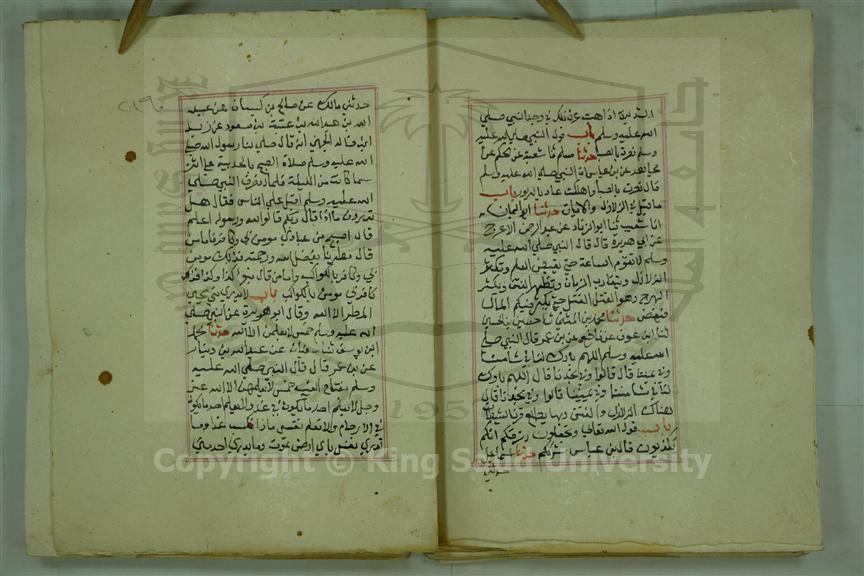 الشديدة اذا هبت عرف ذلك في وجه النبي صلى
الله عليه وسلم باب قول النبي صلى الله عليه
وسلم نصرت بالصبا حدثنا مسلم ثنا شعبة عن الحكم عن
مجاهد عن بن عباس ان النبي صلى الله عليه وسلم
قال نصرت بالصبا واهلكت عاد بالدبور باب
ما قيل في الزلازل والايات حدثنا ابو اليمان
انا شعيب ثنا ابو الزناد عن عبد الرحمن الاعرج
عن ابي هريرة قال قال النبي صلى الله عليه
وسلم لا تقوم الساعة حتى يقبض العلم وتكثر
الزلازل ويتقارب الزمان وتظهر الفتن ويكثر
الهرج وهو القتل القتل حتى يكثر فيكم المال
فيفيض حدثنا محمد بن المثنى ثنا حسين بن الحسن
ثنا ابن عون عن نافع عن بن عمر قال النبي صلى
الله عليه وسلم اللهم بارك لنا في شامنا
وفي يمننا قال قالوا وفي نجدنا قال اللهم بارك
لنا في شامنا وفي يمننا قالوا وفي نجدنا قال
هناك الزلازل والفتن وبها يطلع قرن الشيطان
باب قول الله تعالى وتجعلون رزقكم انكم
تكذبون قال بن عباس شكركم حدثنا اسماعيل
حدثني
حدثني مالك عن صالح بن كيسان عن عبيد
الله بن عبد الله بن عتبة بن مسعود عن زيد
ابن خالد الجهني انه قال صلى لنا رسول الله صلى
الله عليه وسلم صلاة الصبح بالحديبية على اثر
سما كانت من الليلة فلما انصرف النبي صلى
الله عليه وسلم اقبل على الناس فقال هل
تدرون ماذا قال ربكم قالوا الله ورسوله اعلم
قال اصبح من عبادي مومن بي وكافر فاما من
قال مطرنا بفضل الله ورحمته فذلك مومن
بي وكافر بالكواكب واما من قال بنو كذا وكذا فذلك
كافر بي مومن بالكواكب باب لا يدري متى يجي
المطر الا الله وقال ابو هريرة عن النبي صلى
الله عليه وسلم خمس لا يعلمهن الا الله حدثنا محمد
ابن يوسف ثنا سفيان عن عبد الله بن دينار
عن بن عمر قال قال النبي صلى الله عليه
وسلم مفتاح الغيب خمس لا يعلمها الا الله عز
وجل لا يعلم احد ما يكون في غد ولا يعلم احد ما يكون
في الارحام ولا تعلم نفس ماذا تكسب غدا وما
تدري نفس باي ارض تموت وما يدري احد متى
Copyright © King Saud University
1957